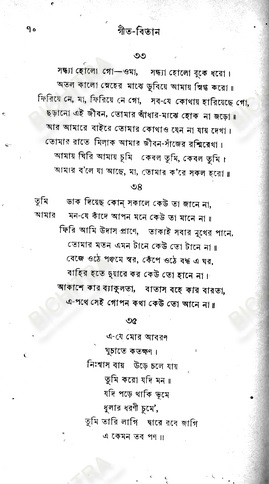 ৭০
গীত-বিতান
৩৩
সন্ধ্যা হোলো গো—ওমা, সন্ধ্যা হোলো বুকে ধরো।
অতল কালো স্নেহের মাঝে ডুবিয়ে আমায় স্নিগ্ধ করো॥
ফিরিয়ে নে, মা, ফিরিয়ে নে গো, সব-যে কোথায় হারিয়েছে গো,
ছড়ানো এই জীবন, তোমার আঁধার-মাঝে হোক না জড়ো॥
আর আমারে বাইরে তোমার কোথাও যেন না যায় দেখা।
তোমার রাতে মিলাক আমার জীবন-সাঁজের রশ্মিরেখা।
আমায় ঘিরি আমায় চুমি কেবল তুমি, কেবল তুমি।
আমার ব'লে যা আছে, মা, তোমার ক'রে সকল হরো॥
৩৪
তুমি ডাক দিয়েছ কোন্ সকালে কেউ তা জানে না,
আমার মন-যে কাঁদে আপন মনে কেউ তা মানে না॥
ফিরি আমি উদাস প্রাণে, তাকাই সবার মুখের পানে,
তোমার মতন এমন টানে কেউ তো টানে না॥
বেজে ওঠে পঞ্চমে স্বর, কেঁপে ওঠে বন্ধ এ ঘর,
বাহির হতে দুয়ারে কর কেউ তো হানে না।
আকাশে কার ব্যাকুলতা, বাতাস বহে কার বারতা,
এ-পথে সেই গোপন কথা কেউ তো আনে না॥
৩৫
এ-যে মোর আবরণ
ঘুচাতে কতক্ষণ।
নিঃশ্বাস বায় উড়ে চলে যায়
তুমি করো যদি মন॥
যদি পড়ে থাকি ভূমে
ধুলার ধরণী চুমে',
তুমি তারি লাগি দ্বারে রবে জাগি
এ কেমন তব পণ॥